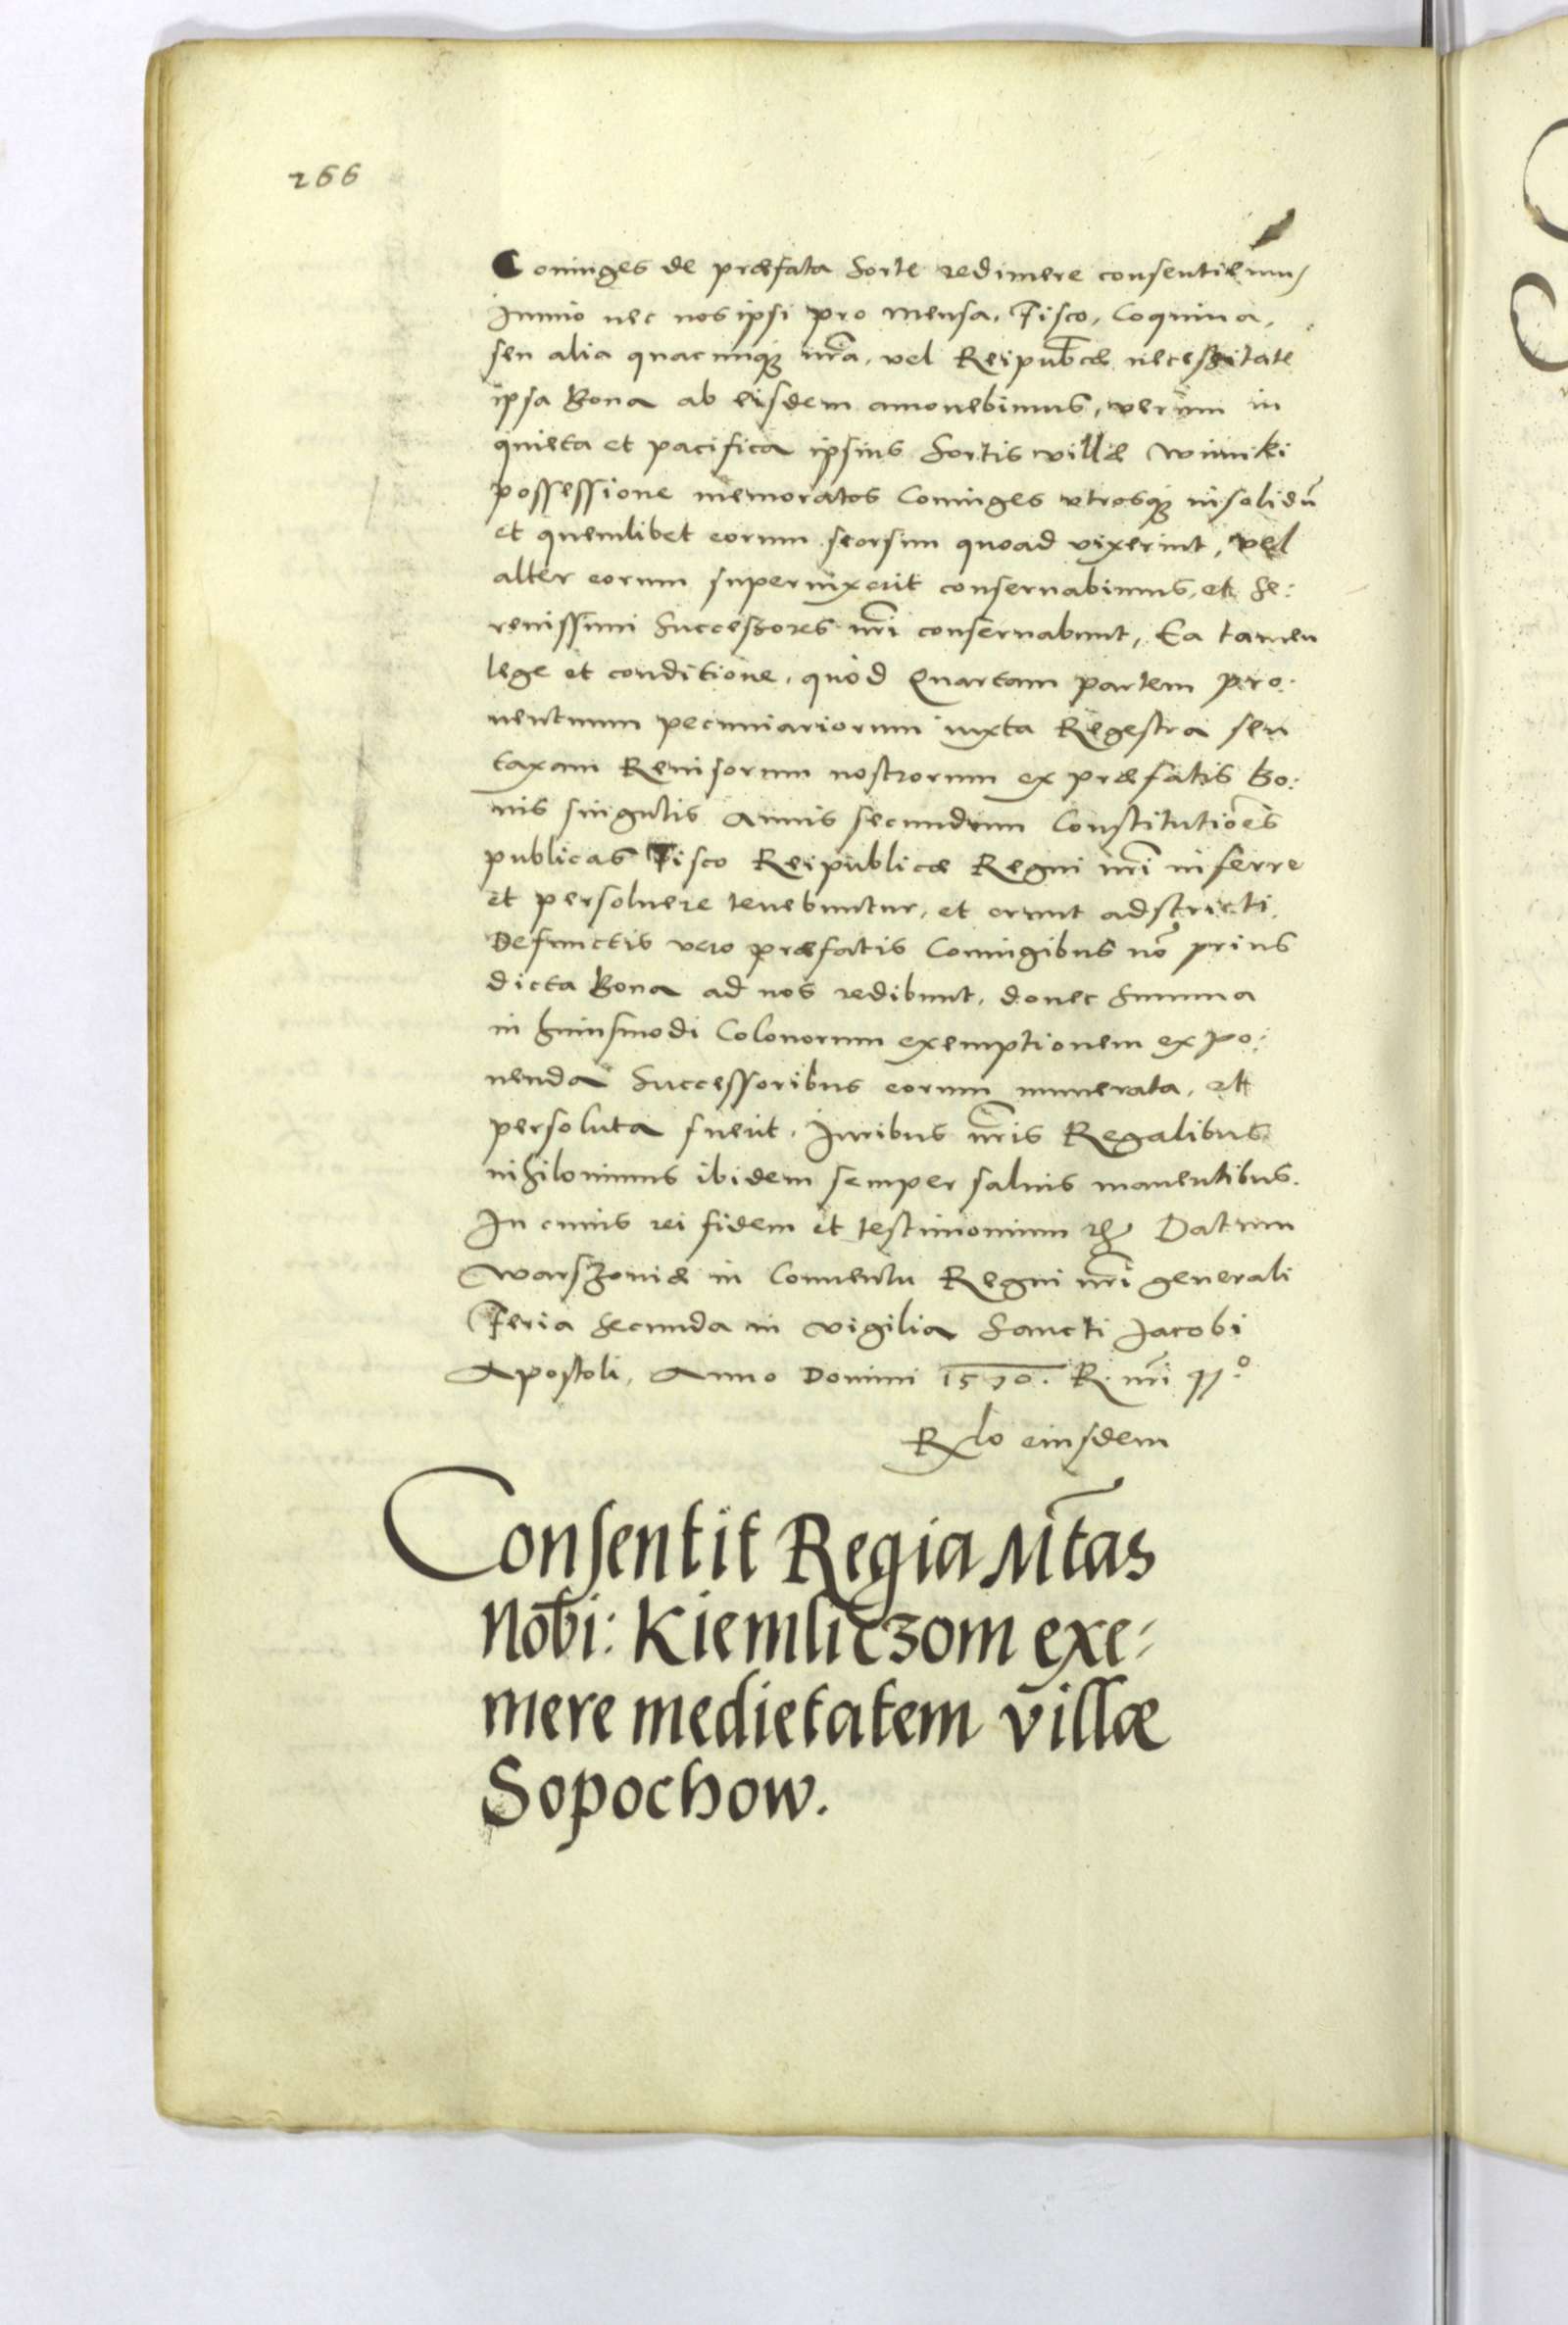 266
Coniuges de præfata Sorte redimere consentiemus,
Immo nec nos ipsi pro Mensa, Fisco, Coquina,
seu alia quacunqꝫ nr̃a, vel Reipub̃cæ necessitate
ipsa Bona ab eisdem amouebimus, verum in
quieta et pacifica ipsius Sortis villæ Winniki
possessione memoratos Coniuges vtrosqꝫ insolidũ
et quemlibet eorum seorsim quoad vixerint, vel
alter eorum superuixerit conseruabimus, et Se:
renissimi Successores nr̃i conseruabunt, Ea tamen
lege et conditione, quòd Quartam partem pro:
uentuum pecuniariorum iuxta Regestra seu
taxam Reuisorum nostrorum ex præfatis Bo:
nis singulis Annis secundum Constitutiões
publicas Fisco Reipublicæ Regni nr̃i inferre
et persoluere tenebuntur, et erunt adstricti.
Defunctis vero præfatis Coniugibus nõ prius
dicta Bona ad nos redibunt, donec Summa
in huiusmodi Colonorum exemptionem expo:
nenda Successoribus eorum numerata, et
persoluta fuerit. Iuribus nr̃is Regalibus
nihilominus ibidem semper saluis manentibus.
In cuius rei fidem et testimonium ꝛc̃ Datum
Warszouiæ in Conuentu Regni nr̃i generali
Feria Secunda in vigilia Sancti Jacobi
Apostoli, Anno Domini 1570. R. nr̃i 41º
Rlo eiusdem
Consentit Regia Mt̃as
Nob̃i: Kiemliczom exe-
mere medietatem villæ
Sopochow.